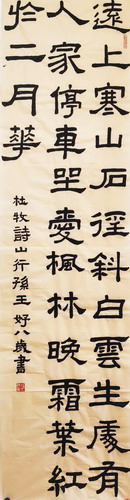 遠上寒山石徑斜白雲生處有
人家停車坐愛楓林晚霜葉紅
於二月華
杜牧詩山行孫王好八歲書